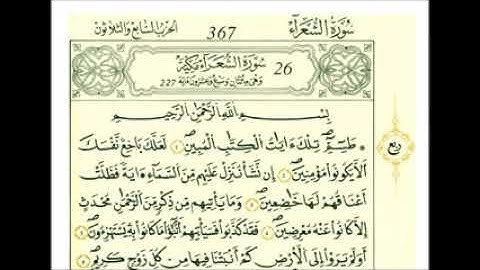 سُورَةُ الشُّعَرَاءِ 367 الحزب السابع والثلاثون
26 سُورَةُ الشُّعَرَاءِ مَكِّيَّة
وَهِيَ مِائَتَانِ وَسَبْعٌ وَعِشْرُونَ ءَايَة 227
بِسْمِ اللَّهِ الرَّحْمَٰنِ الرَّحِيمِ
طسٓمٓ تِلْكَ ءَايَٰتُ الْكِتَٰبِ الْمُبِينِ لَعَلَّكَ بَٰخِعٌ نَّفْسَكَ
أَلَّا يَكُونُوا مُؤْمِنِينَ إِن نَّشَأْ نُنَزِّلْ عَلَيْهِم مِّنَ السَّمَآءِ ءَايَةً فَظَلَّتْ
أَعْنَٰقُهُمْ لَهَا خَٰضِعِينَ وَمَا يَأْتِيهِم مِّن ذِكْرٍ مِّنَ الرَّحْمَٰنِ مُحْدَثٍ
إِلَّا كَانُوا عَنْهُ مُعْرِضِينَ فَقَدْ كَذَّبُوا فَسَيَأْتِيهِمْ أَنۢبَٰٓؤُا مَا كَانُوا بِهِۦ يَسْتَهْزِءُونَ
أَوَلَمْ يَرَوْا إِلَى الْأَرْضِ كَمْ أَنۢبَتْنَا فِيهَا مِن كُلِّ زَوْجٍ كَرِيمٍ
ربع